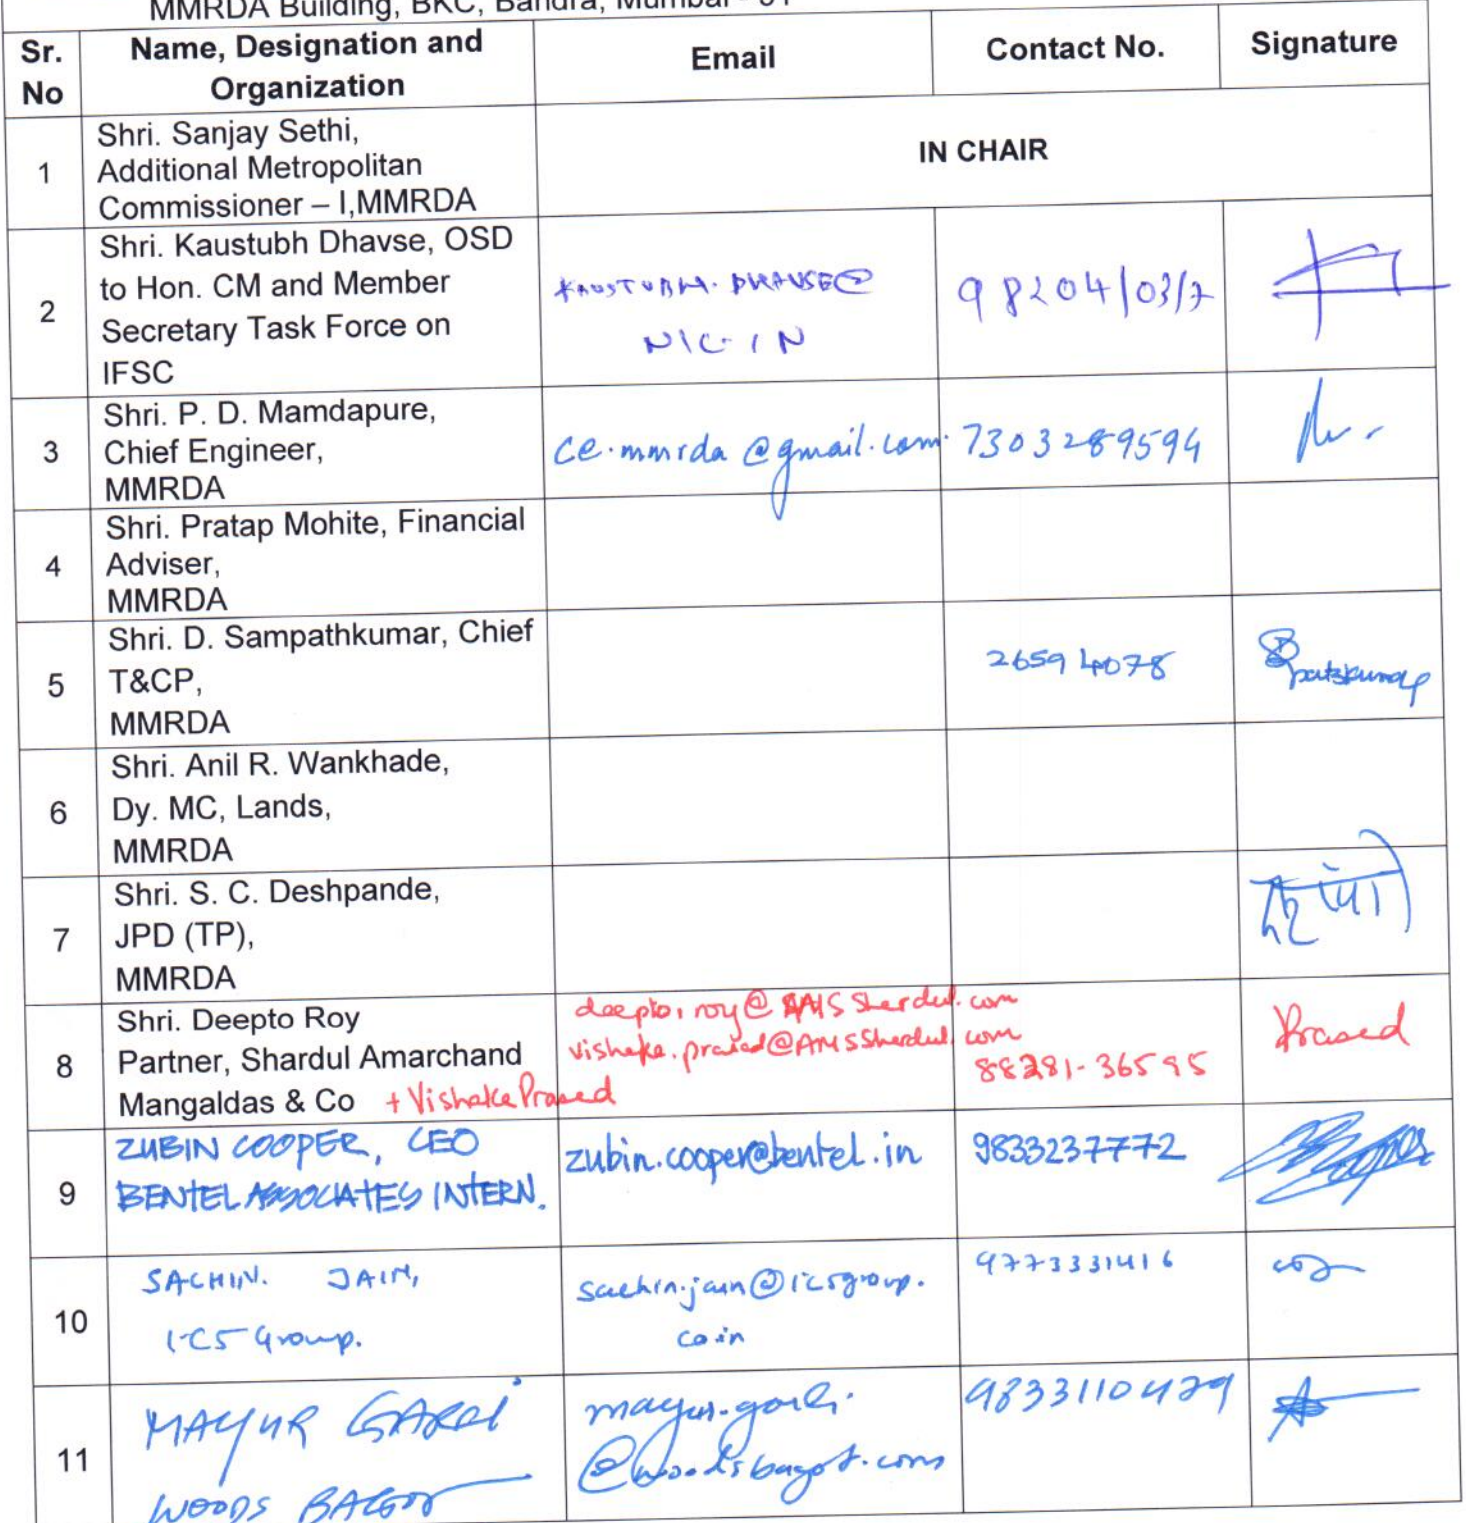 MMRDA Building, BKC, Bandra, Mumbai - 51
Sr. No
Name, Designation and Organization
Email
Contact No.
Signature
1
Shri. Sanjay Sethi,
Additional Metropolitan
Commissioner – I,MMRDA
IN CHAIR
2
Shri. Kaustubh Dhavse, OSD
to Hon. CM and Member
Secretary Task Force on
IFSC
KAUSTUBH.DHAVSE@
NIC.IN
98204/03/7
3
Shri. P. D. Mamdapure,
Chief Engineer,
MMRDA
ce.mmrda@gmail.com
7303289594
4
Shri. Pratap Mohite, Financial
Adviser,
MMRDA
5
Shri. D. Sampathkumar, Chief
T&CP,
MMRDA
26594078
6
Shri. Anil R. Wankhade,
Dy. MC, Lands,
MMRDA
7
Shri. S. C. Deshpande,
JPD (TP),
MMRDA
8
Shri. Deepto Roy
Partner, Shardul Amarchand
Mangaldas & Co + Vishake Prasad
deepto.roy@AMSShardul.com
vishake.prasad@AMSShardul.com
88281-36595
Prasad
9
ZUBIN COOPER, CEO
BENTEL ASSOCIATES INTERN.
zubin.cooper@bentel.in
9833237772
10
SACHIN. JAIN,
ICS Group.
sachin.jain@icsgroup.
co.in
9773331416
11
MAYUR
WOODS BAGOT
@woodsbagot.com
9833110429